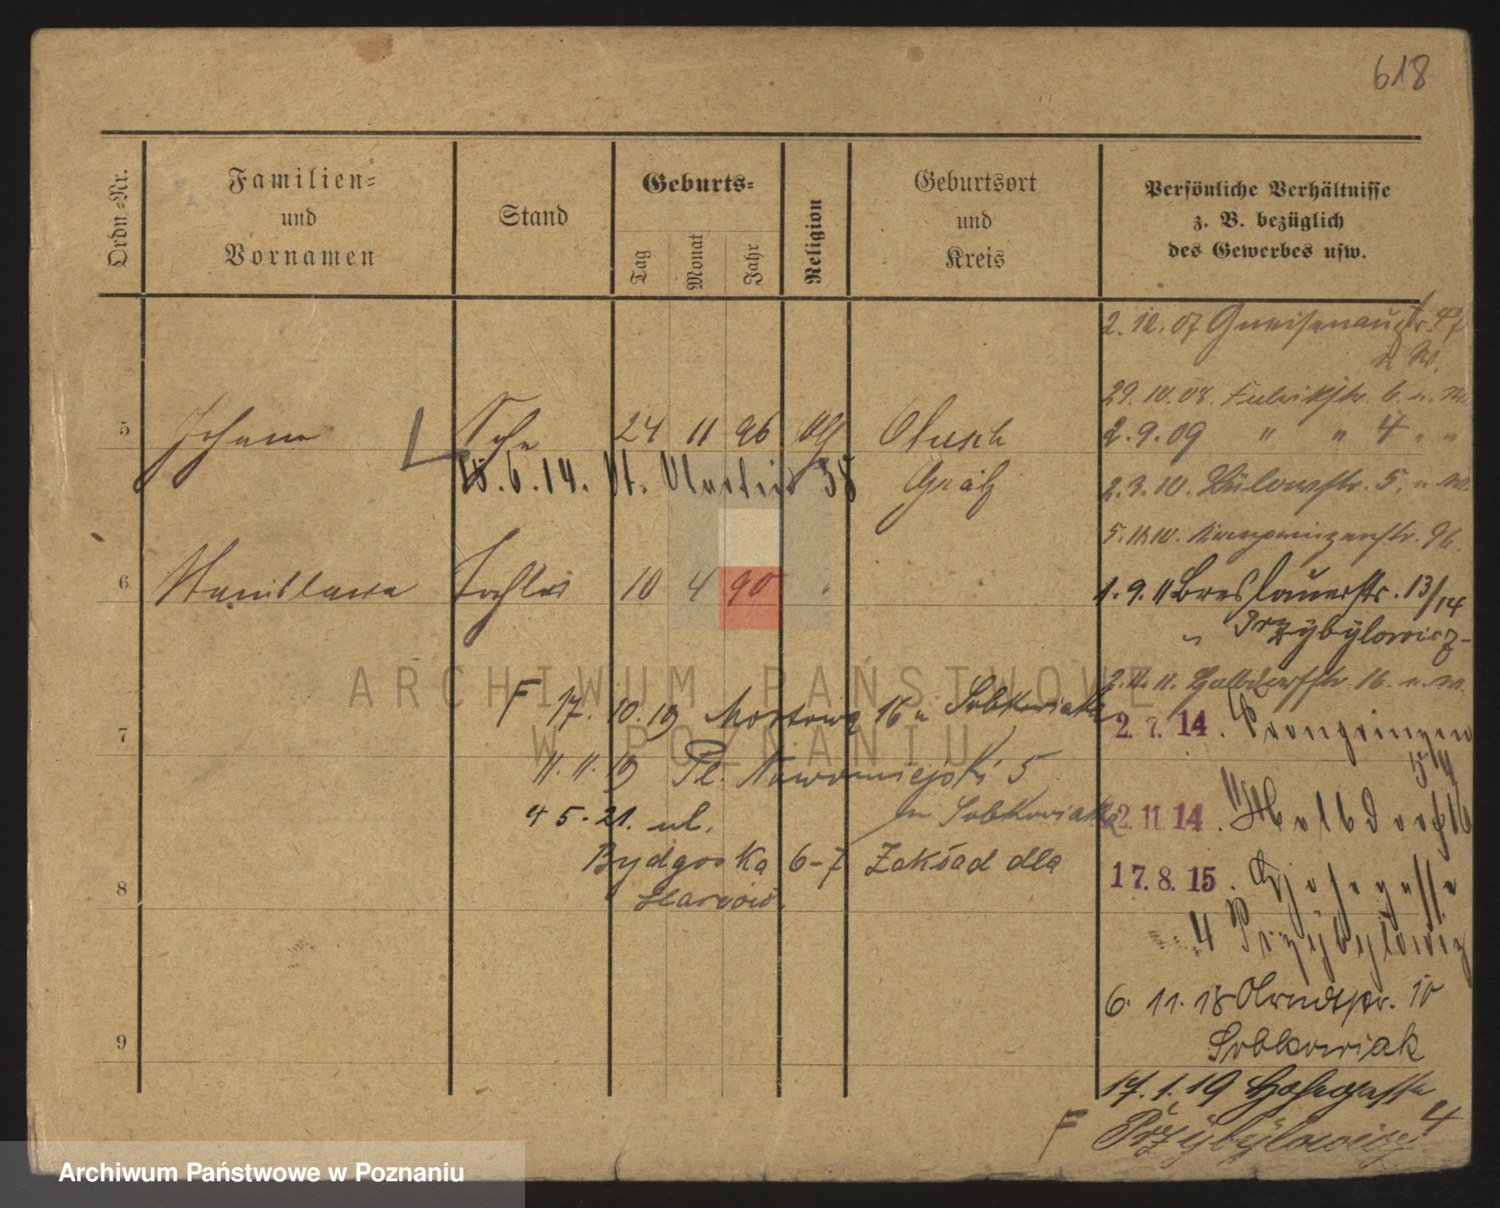 618
Ordn.-Nr.
Familien-
und
Vornamen
Stand
Geburts-
Tag
Monat
Jahr
Religion
Geburtsort
und
Kreis
Persönliche Verhältnisse
z. B. bezüglich
des Gewerbes usw.
2. 12. 07 Gneisenaustr. 4
29. 10. 08. b. u.
5 Johann Sohn 24 11 96
2. 9. 09 " " 4 " "
18. 6. 14. St. 38
Grätz
2. 3. 10. Bülowstr. 5. u.
5. 11. 10. Kronprinzenstr. 96.
6 Stanislawa Tochter 10 4 90 "
1. 9. 11 Breslauerstr. 13/14
" Przybylowicz
2. 11. 11. Halbdorfstr. 16. u. W.
F 17. 10. 19 Mostowa 16 u Sobkowiaka
2. 7. 14. Kronprinzen
7
11. 11. 19 Pl. Nowomiejski 5
u Sobkowiaka
4 5 - 21. ul.
2. 11. 14. Halbdorf 16
Bydgoska 6-7 Zakład dla
Starców.
8
17. 8. 15.
4 Przybylowicz
6. 11. 18 10
Sobkowiak
9
17. 1. 19
F Przybylowicz 4
ARCHIWUM PAŃSTWOWE
W POZNANIU
Archiwum Państwowe w Poznaniu